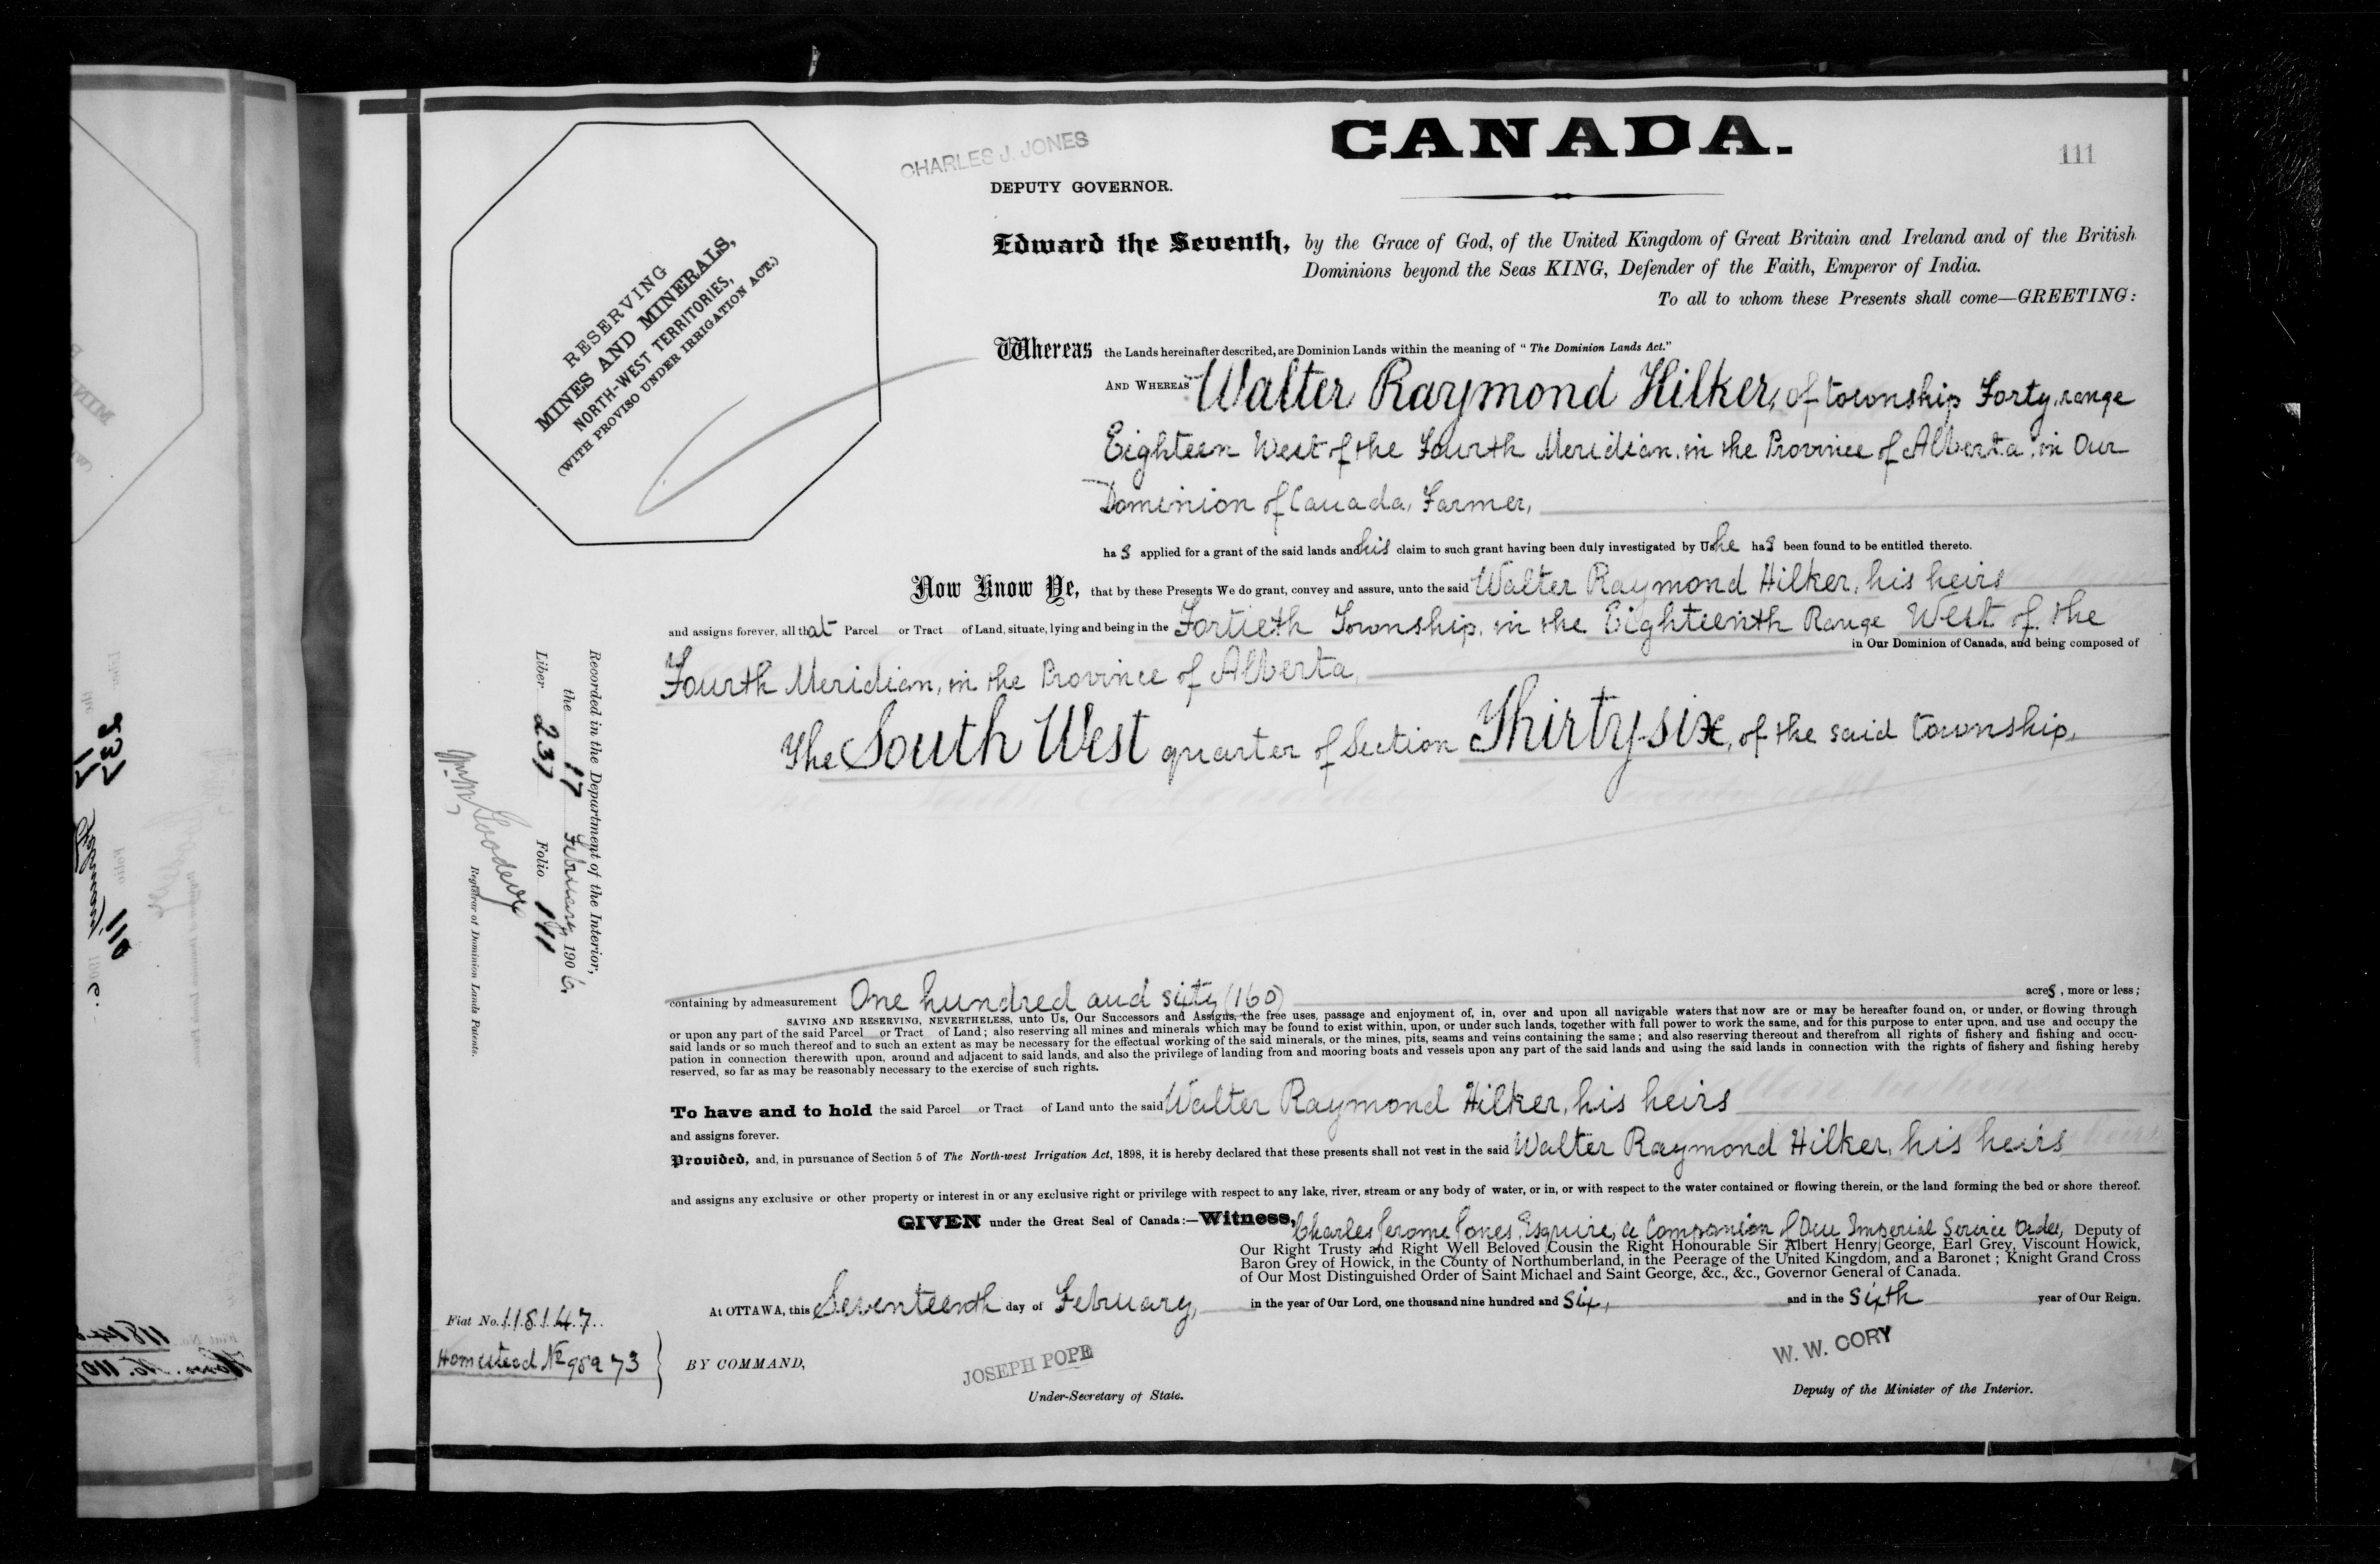 CHARLES J. JONES
CANADA.
111
DEPUTY GOVERNOR.
RESERVING
MINES AND MINERALS,
NORTH-WEST TERRITORIES,
(WITH PROVISO UNDER IRRIGATION ACT.)
Edward the Seventh, by the Grace of God, of the United Kingdom of Great Britain and Ireland and of the British
Dominions beyond the Seas KING, Defender of the Faith, Emperor of India.
To all to whom these Presents shall come—GREETING:
Whereas the Lands hereinafter described, are Dominion Lands within the meaning of "The Dominion Lands Act."
AND WHEREAS Walter Raymond Hilker, of township Forty, range
Eighteen West of the Fourth Meridian, in the Province of Alberta, in Our
Dominion of Canada, Farmer,
has applied for a grant of the said lands and his claim to such grant having been duly investigated by Us he has been found to be entitled thereto.
Now Know Ye, that by these Presents We do grant, convey and assure, unto the said Walter Raymond Hilker, his heirs
and assigns forever, all that Parcel or Tract of Land, situate, lying and being in the Fortieth Township, in the Eighteenth Range West of the
in Our Dominion of Canada, and being composed of
Fourth Meridian, in the Province of Alberta,
The South West quarter of Section Thirty-six, of the said township,
Recorded in the Department of the Interior,
the 17 February 1906
Liber 237 Folio 111
Goodeve
Registrar of Dominion Lands Patents.
containing by admeasurement One hundred and sixty (160) acres, more or less;
SAVING AND RESERVING, NEVERTHELESS, unto Us, Our Successors and Assigns, the free uses, passage and enjoyment of, in, over and upon all navigable waters that now are or may be hereafter found on, or under, or flowing through
or upon any part of the said Parcel or Tract of Land; also reserving all mines and minerals which may be found to exist within, upon, or under such lands, together with full power to work the same, and for this purpose to enter upon, and use and occupy the
said lands or so much thereof and to such an extent as may be necessary for the effectual working of the said minerals, or the mines, pits, seams and veins containing the same; and also reserving thereout and therefrom all rights of fishery and fishing and occu-
pation in connection therewith upon, around and adjacent to said lands, and also the privilege of landing from and mooring boats and vessels upon any part of the said lands and using the said lands in connection with the rights of fishery and fishing hereby
reserved, so far as may be reasonably necessary to the exercise of such rights.
To have and to hold the said Parcel or Tract of Land unto the said Walter Raymond Hilker, his heirs
and assigns forever.
Provided, and, in pursuance of Section 5 of The North-west Irrigation Act, 1898, it is hereby declared that these presents shall not vest in the said Walter Raymond Hilker, his heirs
and assigns any exclusive or other property or interest in or any exclusive right or privilege with respect to any lake, river, stream or any body of water, or in, or with respect to the water contained or flowing therein, or the land forming the bed or shore thereof.
GIVEN under the Great Seal of Canada:—Witness, Charles Jerome Jones, Esquire, a Companion of Our Imperial Service Order, Deputy of
Our Right Trusty and Right Well Beloved Cousin the Right Honourable Sir Albert Henry George, Earl Grey, Viscount Howick,
Baron Grey of Howick, in the County of Northumberland, in the Peerage of the United Kingdom, and a Baronet; Knight Grand Cross
of Our Most Distinguished Order of Saint Michael and Saint George, &c., &c., Governor General of Canada.
At OTTAWA, this Seventeenth day of February, in the year of Our Lord, one thousand nine hundred and six, and in the sixth year of Our Reign.
Fiat No. 118147
Homestead No
BY COMMAND,
JOSEPH POPE
Under-Secretary of State.
W. W. CORY
Deputy of the Minister of the Interior.